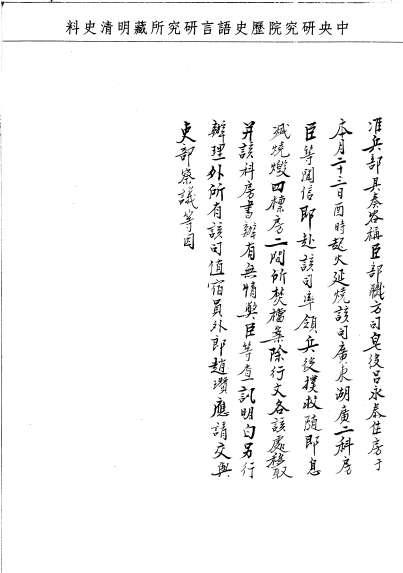 中央研究院歷史語言研究所藏明清史料
准兵部具奏咨稱臣部職方司皂役呂永泰住房于
本月二十三日酉時起火延燒該司廣東湖廣二科房
臣等聞信即赴該司率領兵役撲救隨即息
滅燒燬四檁房二間所焚檔案除行文各該處移取
并該科房書辦有無情弊臣等查訊明白另行
辦理外所有該司值宿員外郎趙瓚應請交與
吏部察議等因